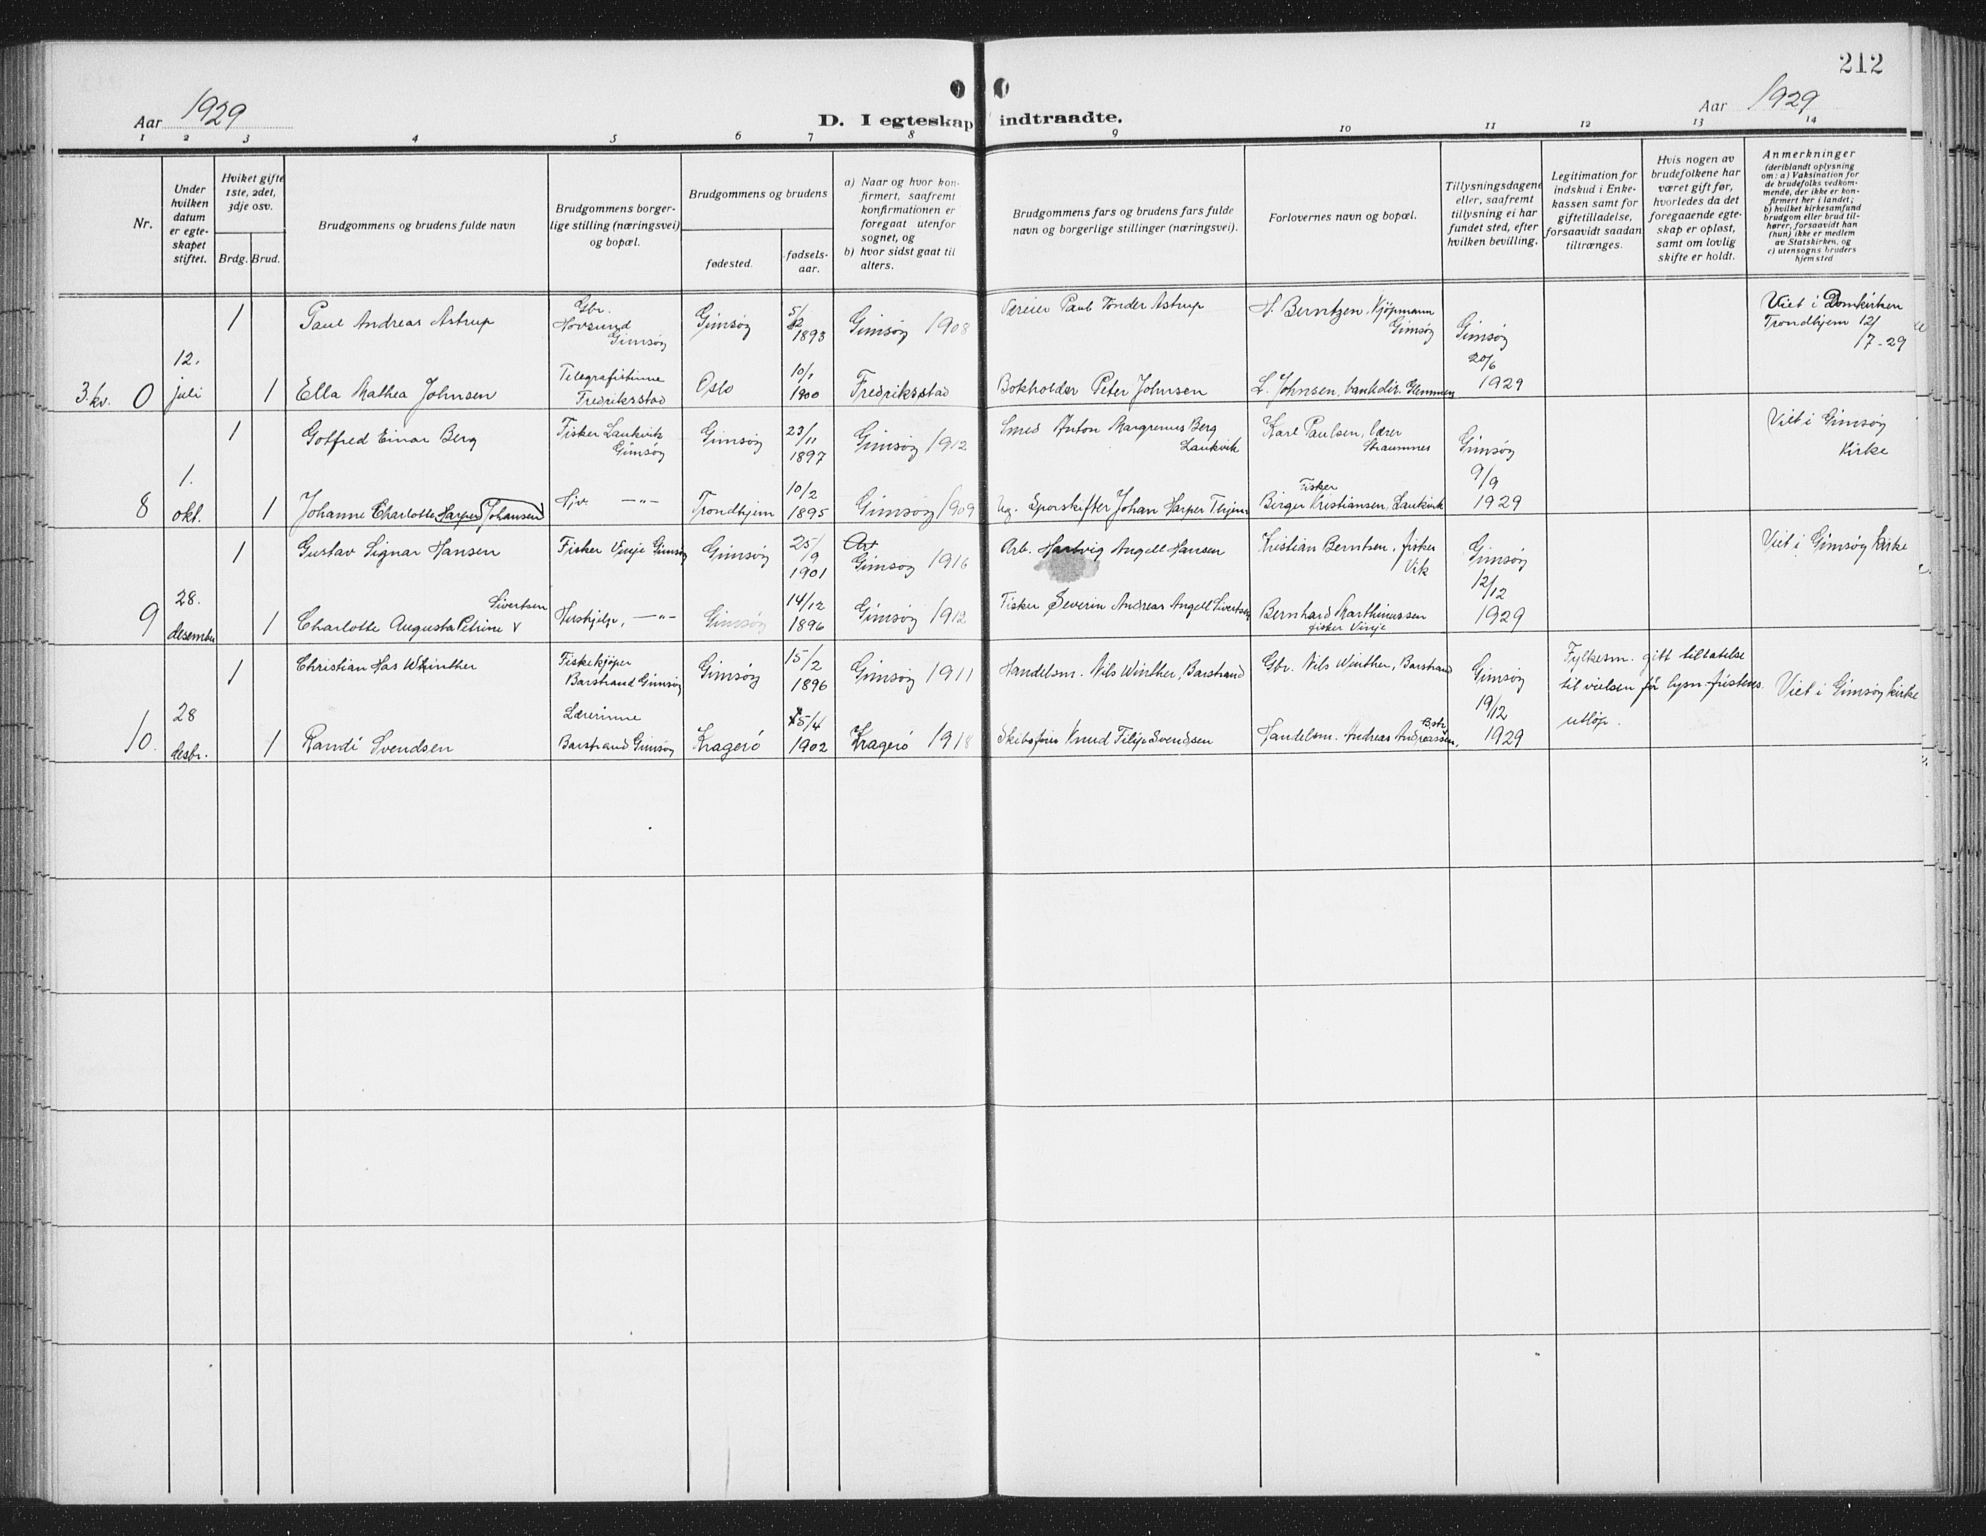 212
Aar 1929
D. I egteskap indtraadte.
Aar 1929
1 2 3 4 5 6 7 8 9 10 11 12 13 14
Nr.
Under hvilken datum er egteskapet stiftet.
Hviket gifte 1ste, 2det, 3dje osv.
Brdg. Brud.
Brudgommens og brudens fulde navn
Brudgommens borgerlige stilling (næringsvei) og bopæl.
Brudgommens og brudens
fødested.
fødselsaar.
a) Naar og hvor konfirmert, saafremt konfirmationen er foregaat utenfor sognet, og
b) hvor sidst gaat til alters.
Brudgommens fars og brudens fars fulde navn og borgerlige stillinger (næringsvei).
Forlovernes navn og bopæl.
Tillysningsdagene eller, saafremt tillysning ei har fundet sted, efter hvilken bevilling.
Legitimation for indskud i Enkekassen samt for giftetilladelse, forsaavidt saadan tiltrænges.
Hvis nogen av brudefolkene har været gift før, hvorledes da det foregaaende egteskap er opløst, samt om lovlig skifte er holdt.
Anmerkninger
(deriblandt oplysning om: a) Vaksination for de brudefolks vedkommende, der ikke er konfirmert her i landet; b) hvilket kirkesamfund brudgom eller brud tilhører, forsaavidt han (hun) ikke er medlem av Statskirken, og c) utensogns bruders hjemsted
1 Paul Andreas Astrup Gbr. Hovsund Gimsøy Gimsøy 5/12 1893 Gimsøy 1908 Væreier Paul Tönder Astrup H. Berntzen, Kjøpmann Gimsøy Viet i Domkirken Trondhjem 12/7-29
3.kv. 0 12. juli 1 Ella Mathea Johnsen Telegrafistinne Fredriksstad Oslo 10/1 1900 Fredriksstad Bokholder Peter Johnsen L. Johnsen, bankdir. Glemmen Gimsøy 20/6 1929
1 Gotfred Einar Berg Fisker Laukvik Gimsøy Gimsøy 23/11 1897 Gimsøy 1912 Smed Anton Margrenus Berg Laukvik Karl Paulsen, lærer Straumnes Viet i Gimsøy Kirke
8 1. okt. 1 Johanne Charlotte Harper Johansen Hjv. —"— Trondhjem 10/2 1895 Gimsøy 1909 Ug. Sporskifter Johan Harper Thjem Fisker Birger Kristiansen, Laukvik Gimsøy 9/9 1929
1 Gustav Signar Hansen Fisker Vinje Gimsøy Gimsøy 25/9 1901 Gimsøy 1916 Arb. Hartvig Angell Hansen Kristian Berntsen, fisker Vik Viet i Gimsøy Kirke
9 28. desember 1 Charlotte Augusta Petrine Sivertsen Hushjelp, —"— Gimsøy 14/12 1896 Gimsøy 1912 Fisker Severin Andreas Angell Sivertsen Bernhard Marthinussen fisker Vinje Gimsøy 12/12 1929
1 Christian Has Winther Fiskekjøper Barstrand Gimsøy Gimsøy 15/2 1896 Gimsøy 1911 Handelsm. Nils Winther, Barstrand Gbr. Nils Winther, Barstrand Fylkesm. gitt tillatelse til vielsen før lysn. fristens utløp. Viet i Gimsøy kirke
10. 28 desbr. 1 Randi Svendsen Lærerinne Barstrand Gimsøy Kragerö 15/4 1902 Kragerö 1918 Skibsfører Knud Tilje Svendsen Handelsm. Andreas Andreassen, Bstr. Gimsøy 19/12 1929